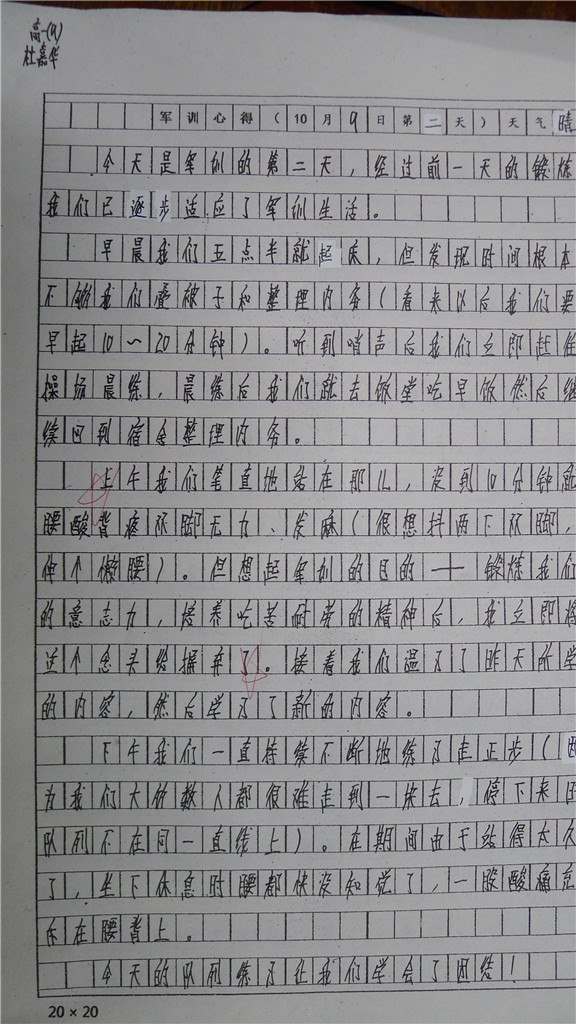 高一(9)
杜嘉华
军训心得(10月9日第二天)天气晴
今天是军训的第二天,经过前一天的锻炼
我们已逐步适应了军训生活。
早晨我们五点半就起床,但发现时间根本
不够我们叠被子和整理内务(看来以后我们要
早起10~20分钟)。听到哨声后我们立即赶往
操场晨练,晨练后我们就去饭堂吃早饭然后继
续回到宿舍整理内务。
上午我们笔直地站在那儿,没到10分钟就
腰酸背疼双脚无力、发麻(很想抖两下双脚,
伸个懒腰)。但想起军训的目的——锻炼我们
的意志力,培养吃苦耐劳的精神后,我立即将
这个念头给摒弃了。接着我们温习了昨天所学
的内容,然后学习了新的内容。
下午我们一直持续不断地练习走正步(因
为我们大份数人都很难走到一块去,停下来因
队列不在同一直线上)。在期间由于站得太久
了,坐下休息时腰都快没知觉了,一股酸痛充
斥在腰背上。
今天的队列练习让我们学会了团结!
20×20